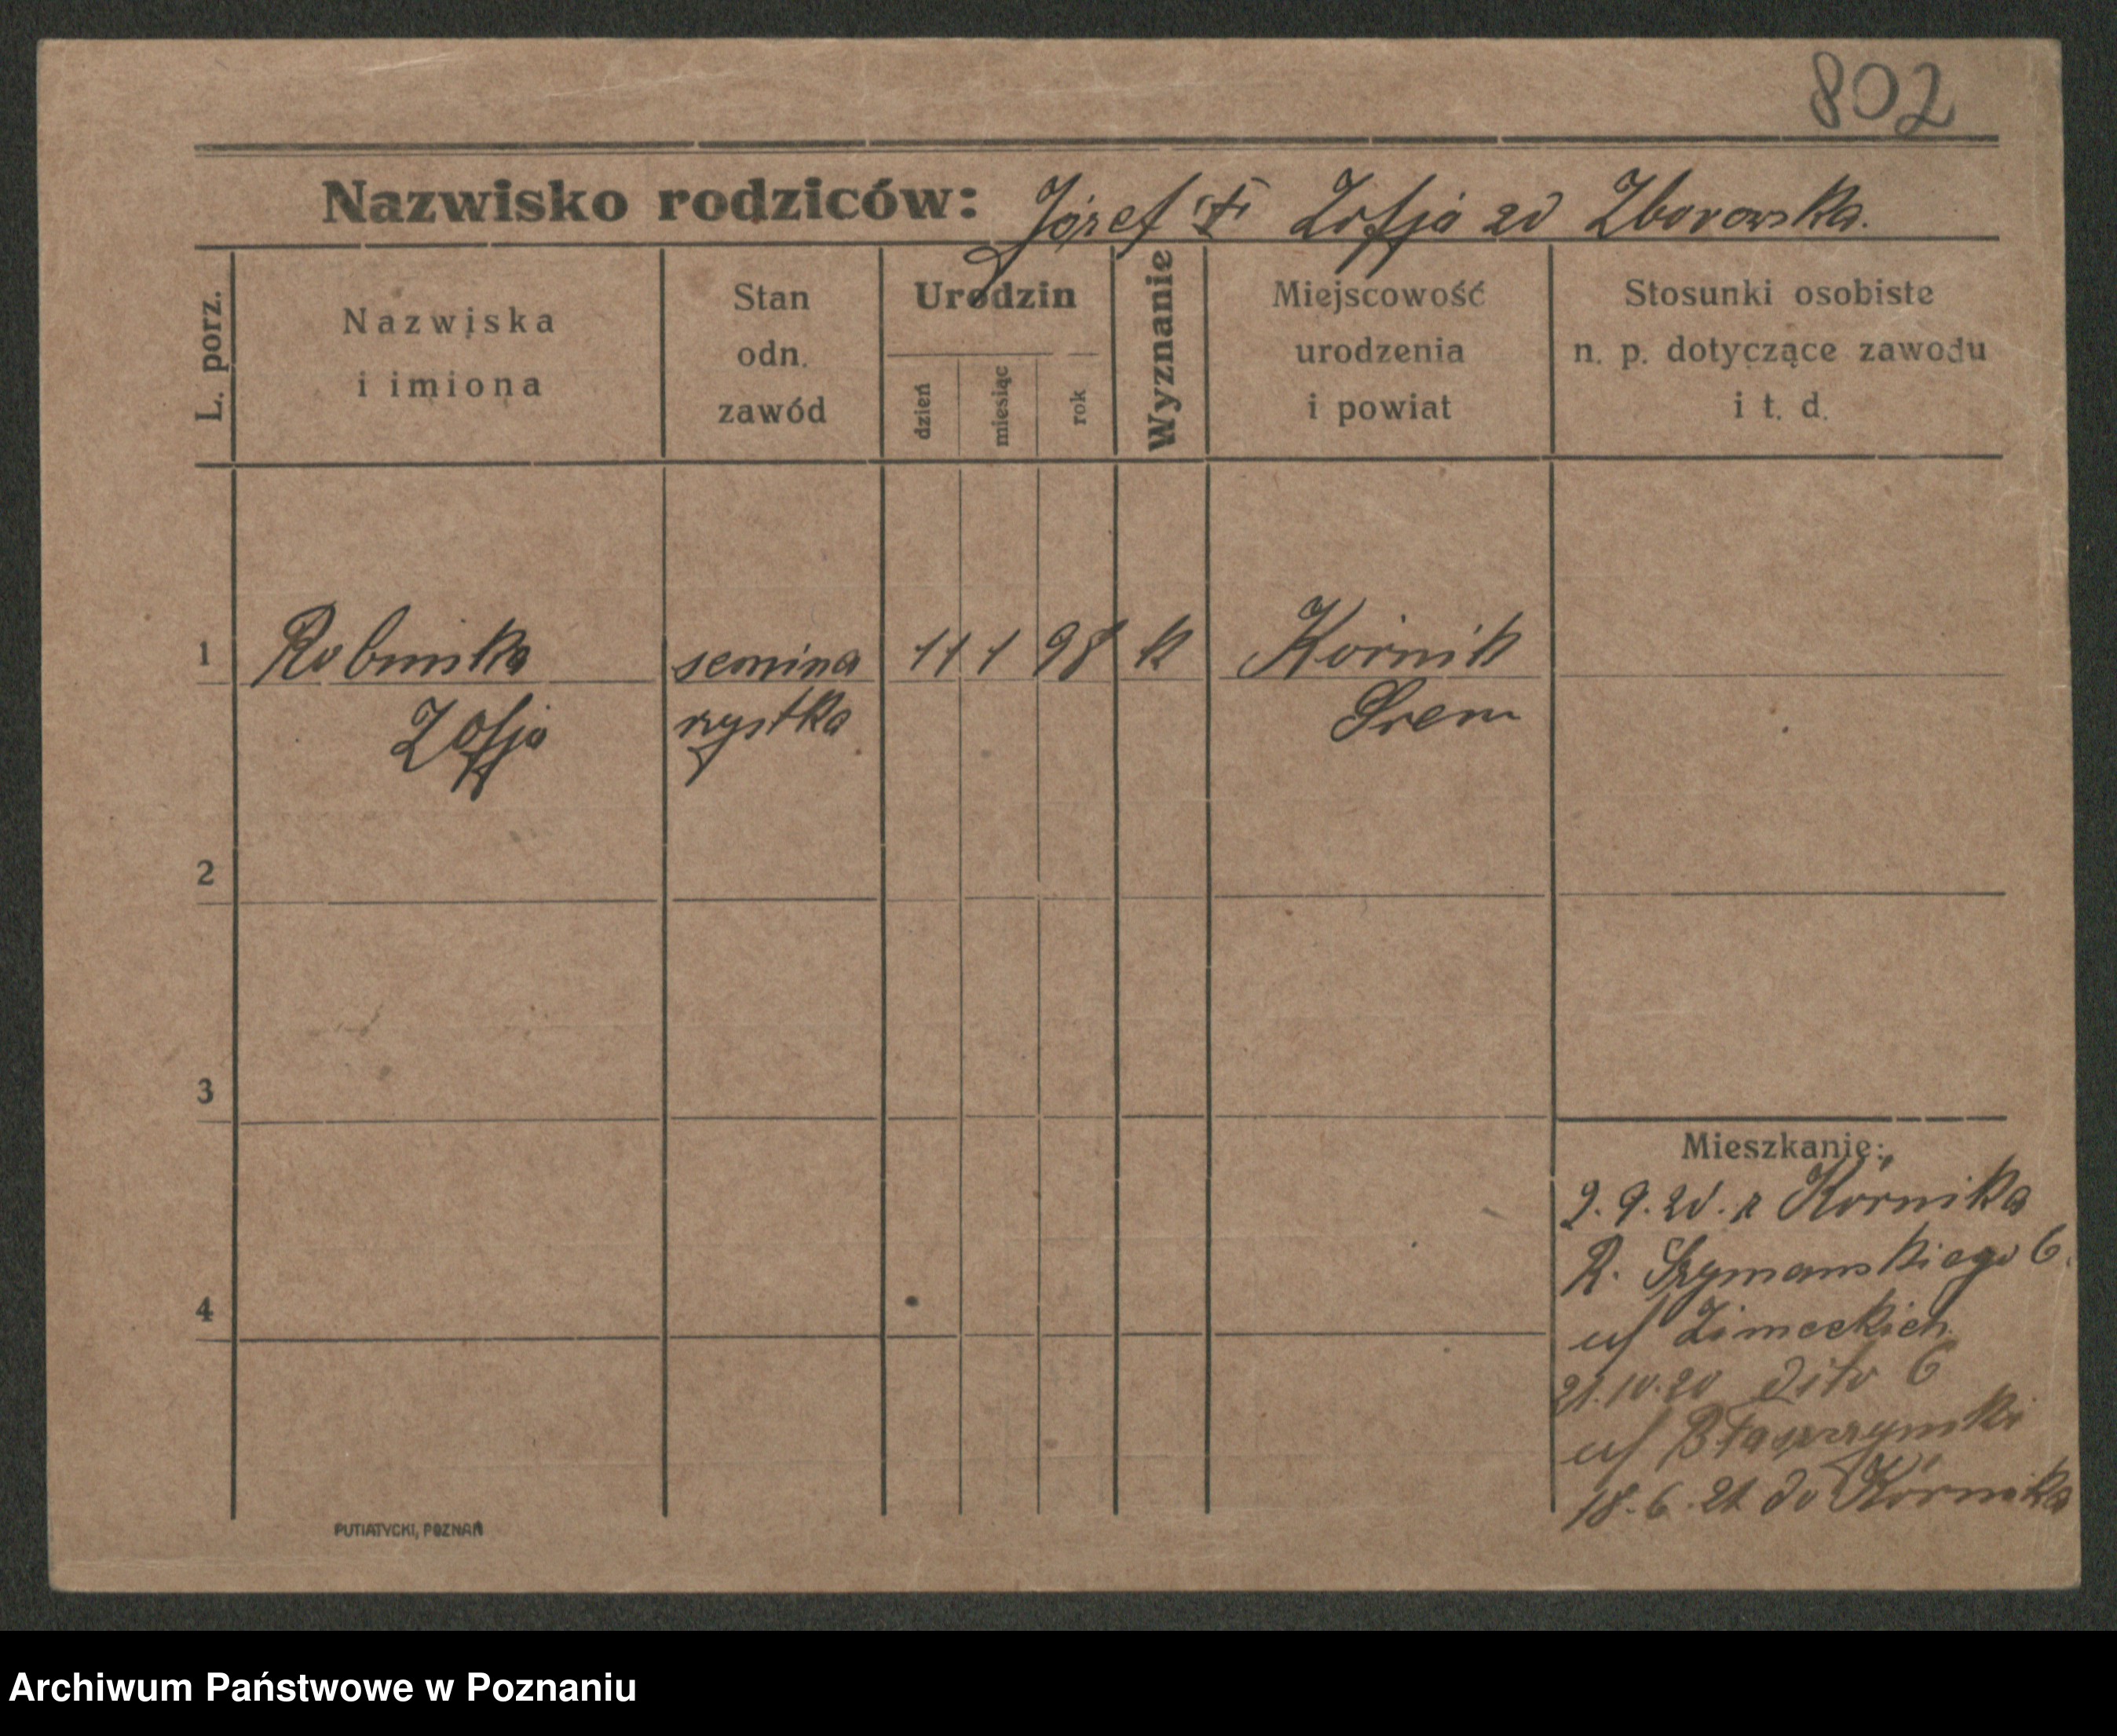 802
Nazwisko rodziców: Józef Zofja zd Zborowska.
L. porz.
Nazwiska
i imiona
Stan
odn.
zawód
Urodzin
dzień
miesiąc
rok
Wyznanie
Miejscowość
urodzenia
i powiat
Stosunki osobiste
n. p. dotyczące zawodu
i t. d.
1 semina 11 1 98 k Kórnik
Zofja rzystka Śrem
2
3
4
Mieszkanie:
2.9.20. z Kórnika
R. Szymanskiego 6.
21.10.20 dito 6
18.6.21 do Kórnika
PUTIATYCKI, POZNAŃ
Archiwum Państwowe w Poznaniu